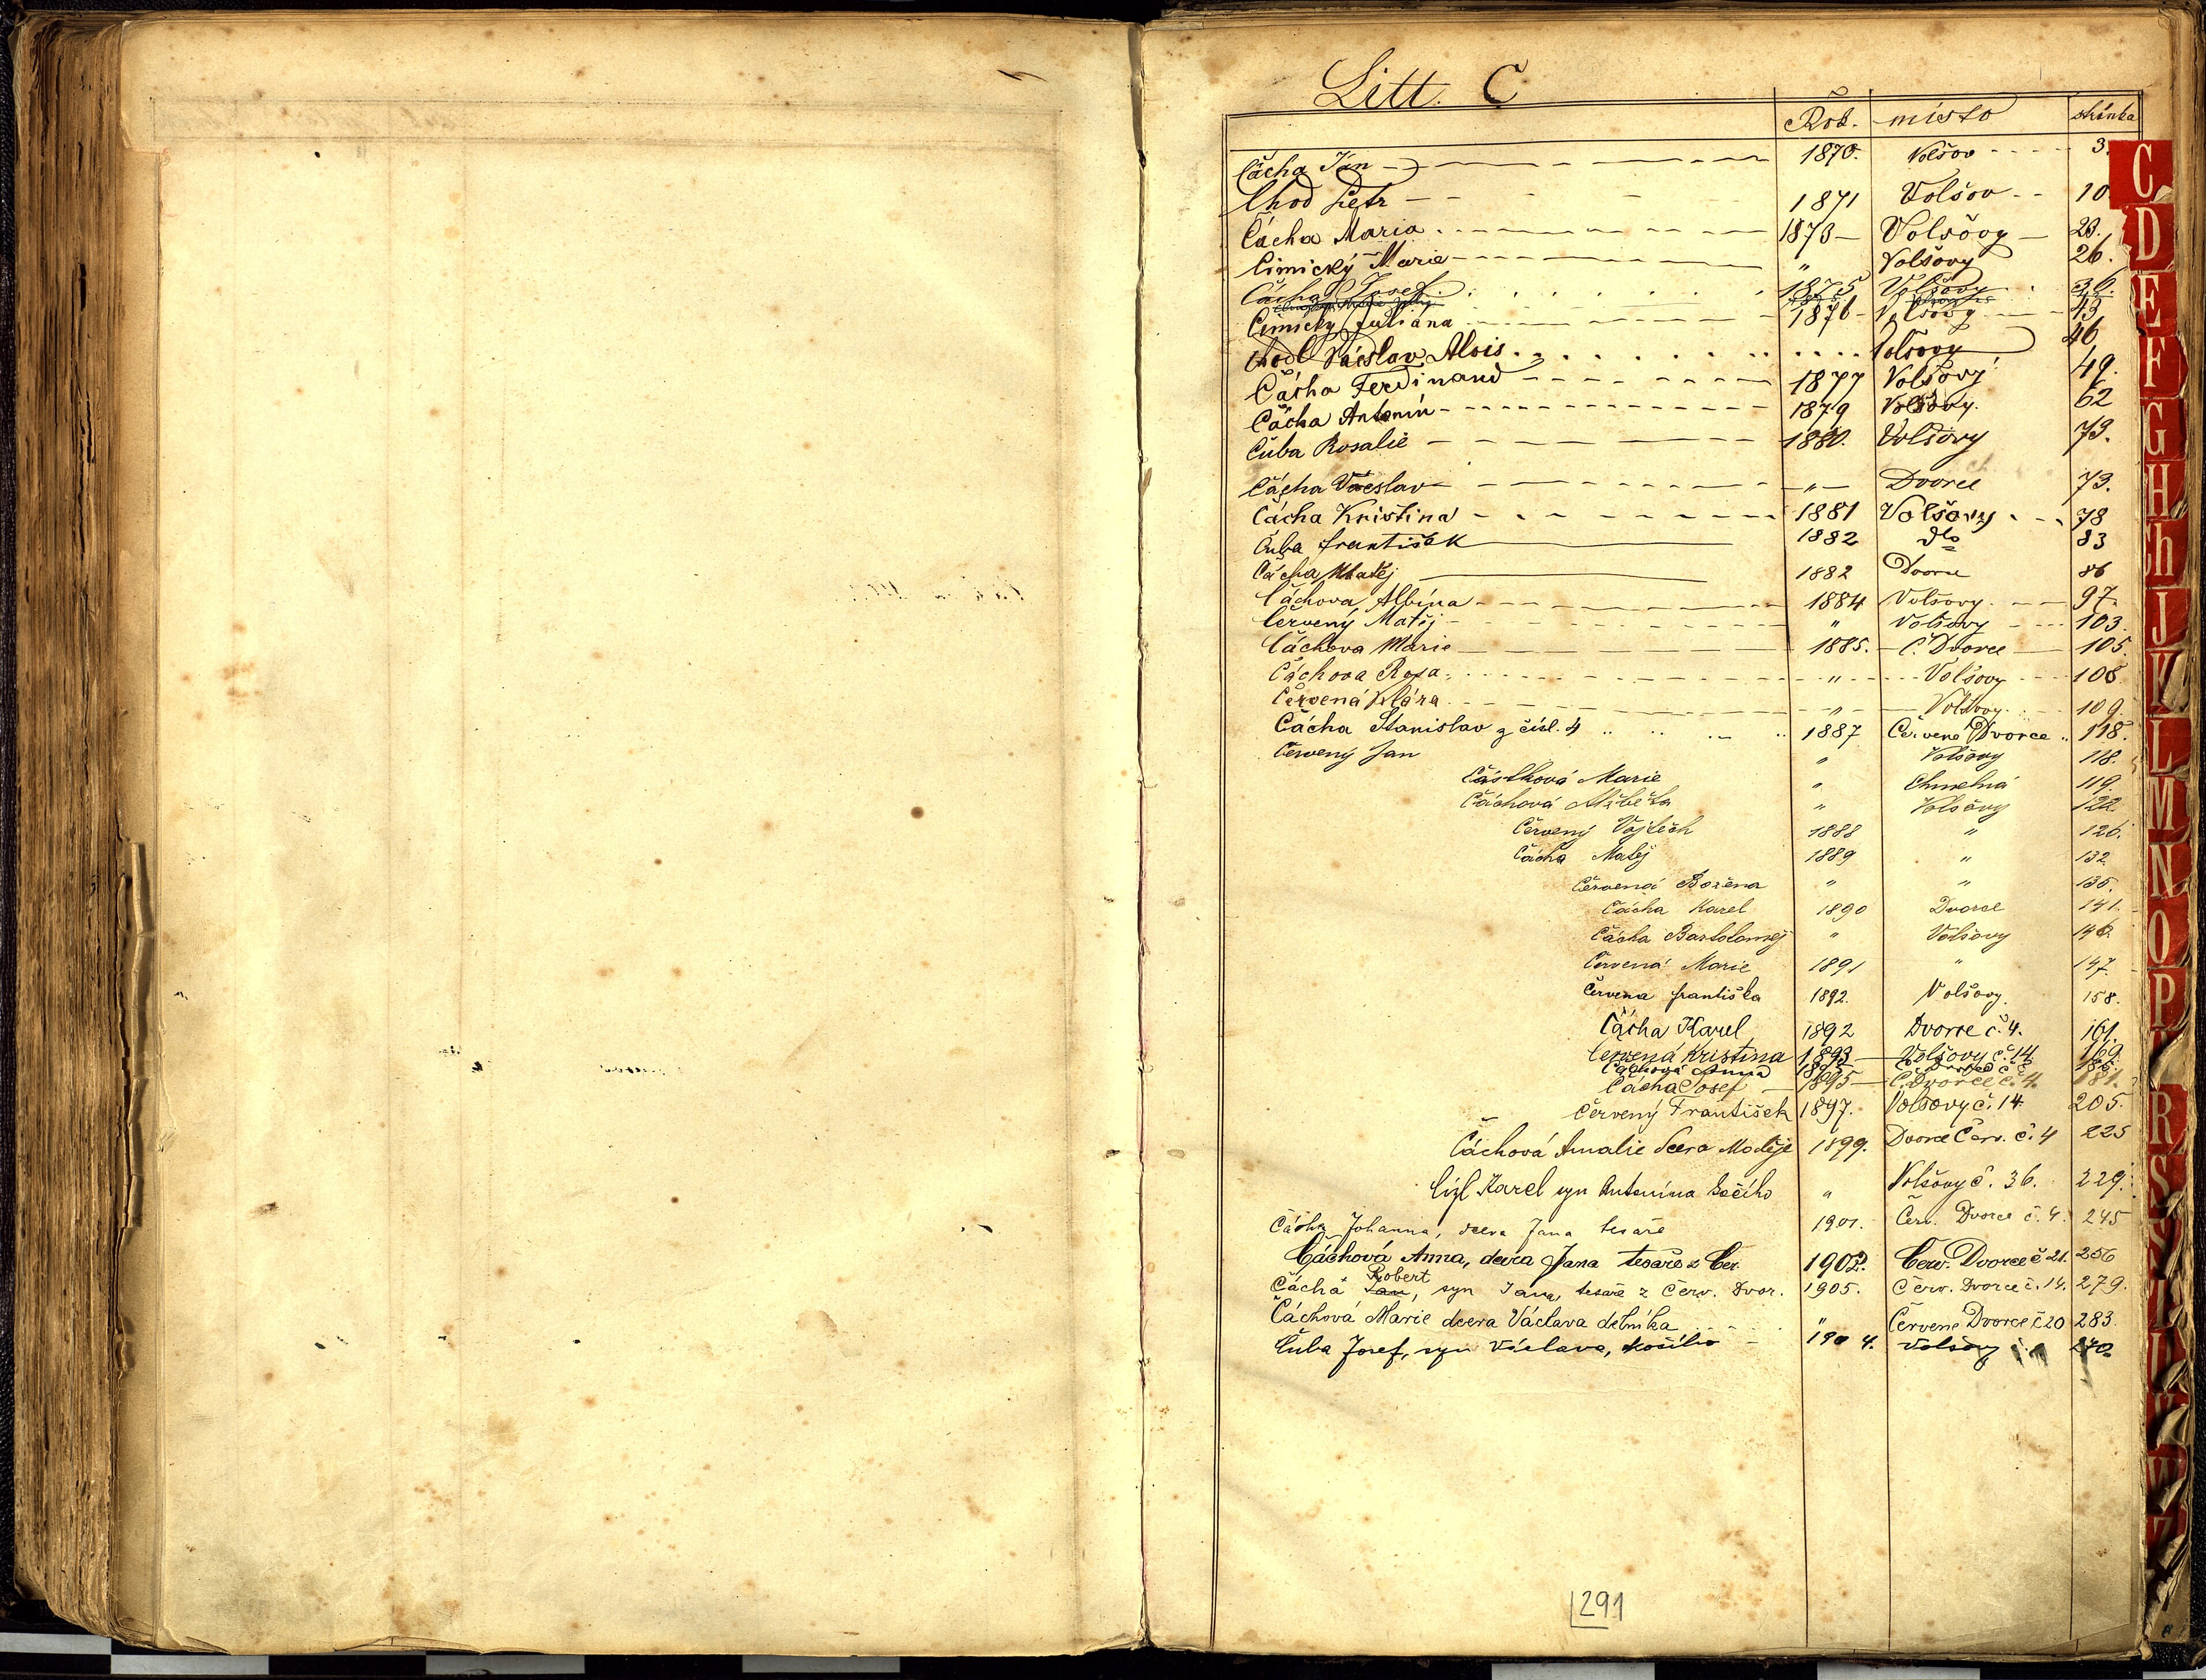 Litt. C
Rok. místo stránka
Čácha Jan 1870. Volšov 3.
Chod Petr 1871 Volšov 10
Čácha Maria 1873 Volšovy 23.
Cimický Marie " Volšovy 26.
Čácha Josef 1875 Volšovy 36.
Cimický Juliana 1876 Volšovy 43
Chodl Václav Alois Volšovy 46
Čácha Ferdinand 1877 Volšovy 49.
Čácha Antonín 1879 Volšovy. 62
Čuba Rosalie 1880. Volšovy 73.
Čácha Václav " Dvorce 73.
Čácha Kristina 1881 Volšovy 78
Čuba František 1882 dto 83
Čácha Matěj 1882 Dvorce 86
Čáchova Albína 1884 Volšovy 97.
Červený Matěj " Volšovy 103.
Čáchova Marie 1885. Č. Dvorce 105.
Čáchova Rosa " Volšovy 108.
Červená Klára " Volšovy 109.
Čácha Stanislav z čísl. 4 1887 Červene Dvorce 118.
Červený Jan " Volšovy 118.
Částková Marie " Chmelná 119.
Čáchová Alžběta " Volšovy 122.
Červený Vojtěch 1888 " 126.
Čácha Matěj 1889 " 132.
Červená Božena " " 135.
Čácha Karel 1890 Dvorce 141.
Čácha Bartoloměj " Volšovy 146.
Červená Marie 1891 " 147.
Červena františka 1892. Volšovy. 158.
Čácha Karel 1892 Dvorce č. 4. 161.
Červená Kristina 1893 Volšovy č. 14 169.
Čáchová Anna
Čácha Josef 1895 Č. Dvorce č. 4. 181.
Červený František 1897. Volšovy č. 14. 205.
Čáchová Amalie dcera Matěje 1899. Dvorce Červ. č. 4 225
Cizl Karel syn Antonína kočího " Volšovy č. 36. 229.
Čácha Johanna, dcera Jana tesaře 1901. Červ. Dvorce č. 4. 245
Čáchová Anna, dcera Jana tesaře z Čer. 1902. Červ. Dvorce č 21. 256
Robert
Čácha Jan, syn Jana, tesaře z Červ. Dvor. 1905. Červ. Dvorce č. 14. 279.
Čáchová Marie dcera Václava dělníka " Červené Dvorce č 20 283.
Čuba Josef, syn Václava, kočího 1904. Volšovy 270.
291
C
D
E
F
G
H
Ch
J
K
L
M
N
O
P
R
S
Z
U
W
Z